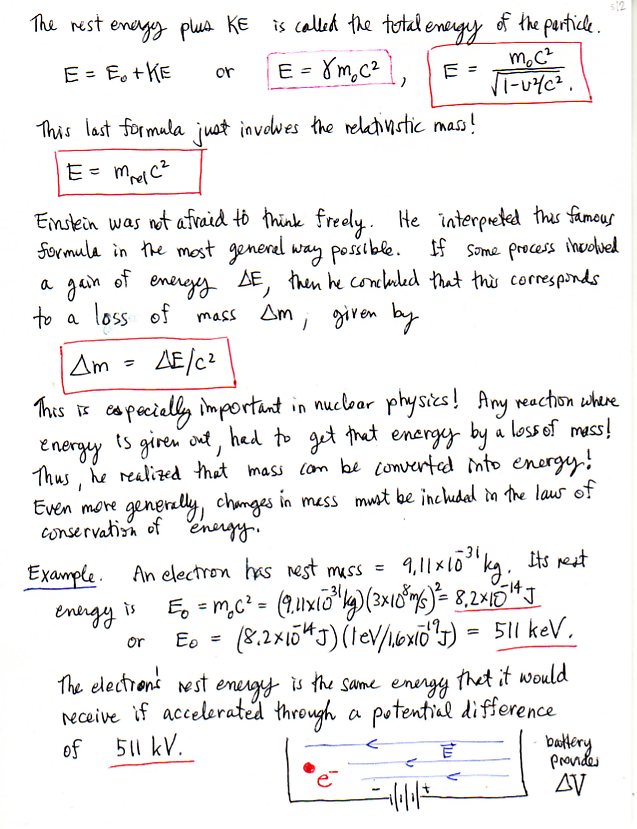 512
The rest energy plus KE is called the total energy of the particle.
E = E₀ + KE or E = γm₀c², E = m₀c² / √(1-v²/c²).
This last formula just involves the relativistic mass!
E = m_rel c²
Einstein was not afraid to think freely. He interpreted this famous
formula in the most general way possible. If some process involved
a gain of energy ΔE, then he concluded that this corresponds
to a loss of mass Δm, given by
Δm = ΔE/c²
This is especially important in nuclear physics! Any reaction where
energy is given out, had to get that energy by a loss of mass!
Thus, he realized that mass can be converted into energy!
Even more generally, changes in mass must be included in the law of
conservation of energy.
Example. An electron has rest mass = 9.11×10⁻³¹ kg. Its rest
energy is E₀ = m₀c² = (9.11×10⁻³¹kg)(3×10⁸m/s)² = 8.2×10⁻¹⁴J
or E₀ = (8.2×10⁻¹⁴J)(1eV/1.6×10⁻¹⁹J) = 511 keV.
The electron's rest energy is the same energy that it would
receive if accelerated through a potential difference
of 511 kV.
E
e⁻
- +
battery
provides
ΔV